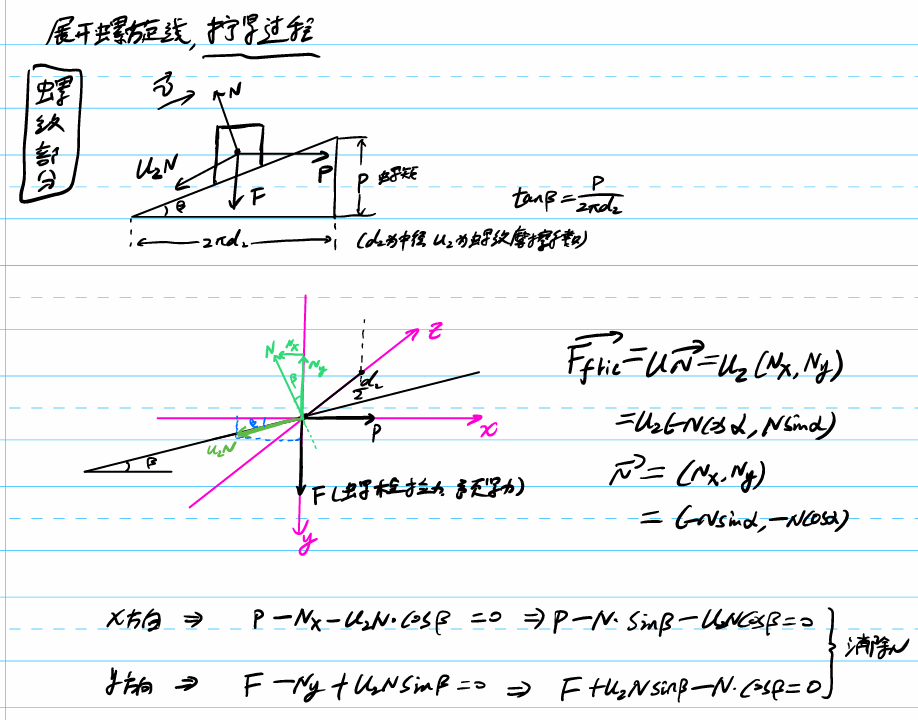 展开螺旋线, 拧紧过程
螺纹部分
v
N
u₂N
F
P
P 螺距
β
2πd₂
tanβ = P / 2πd₂
(d₂为中径 u₂为螺纹摩擦系数)
z
N Nx
Ny
β
d₂/2
P
x
u₂N
β
F (螺栓拉力, 预紧力)
y
F fric = uN = u₂ (Nx, Ny)
= u₂(-Ncosα, Nsinα)
N = (Nx, Ny)
= (-Nsinα, -Ncosα)
x方向 ⇒ P - Nx - u₂N·cosβ = 0 ⇒ P - N·sinβ - u₂Ncosβ = 0
y方向 ⇒ F - Ny + u₂Nsinβ = 0 ⇒ F + u₂Nsinβ - N·cosβ = 0
消除N